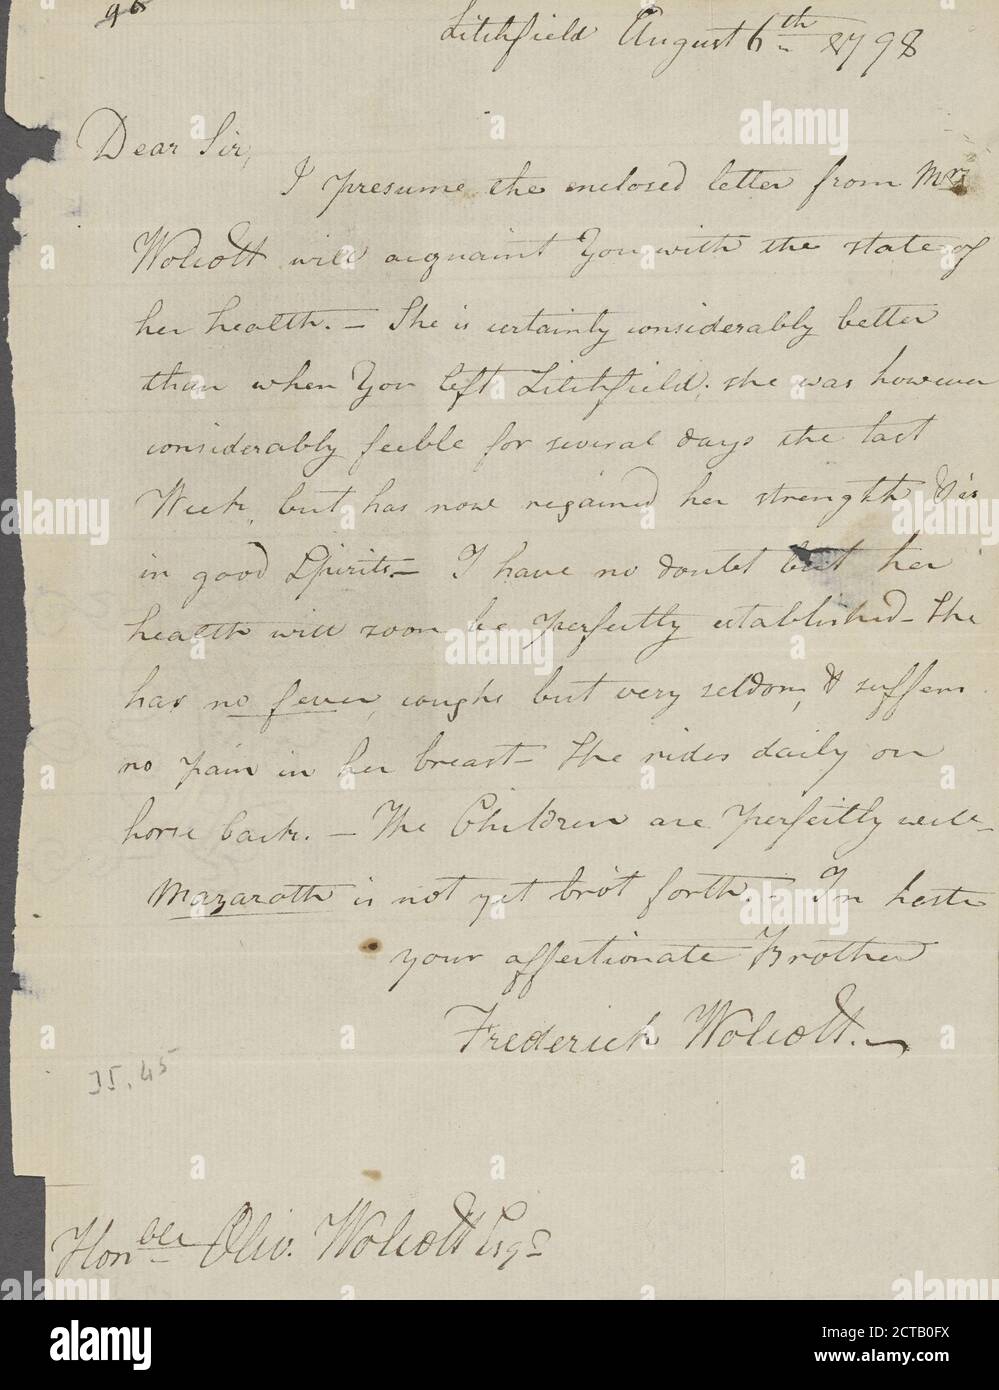 98
Litchfield August 6th 1798
Dear Sir,
I presume the enclosed letter from Mrs
Wolcott will acquaint You with the state of
her health. — She is certainly considerably better
than when You left Litchfield; she was however
considerably feeble for several days the last
Week, but has now regained her strength & is
in good Spirits — I have no doubt but her
health will soon be perfectly established — She
has no fever, coughs but very seldom, & suffers
no pain in her breast — She rides daily on
horse back. — The Children are perfectly well —
Mazaroth is not yet bro't forth. — In haste
your affectionate Brother
Frederick Wolcott.
II. 45
Honble Oliv. Wolcott Esqr
alamy
Image ID: 2CTB0FX
www.alamy.com